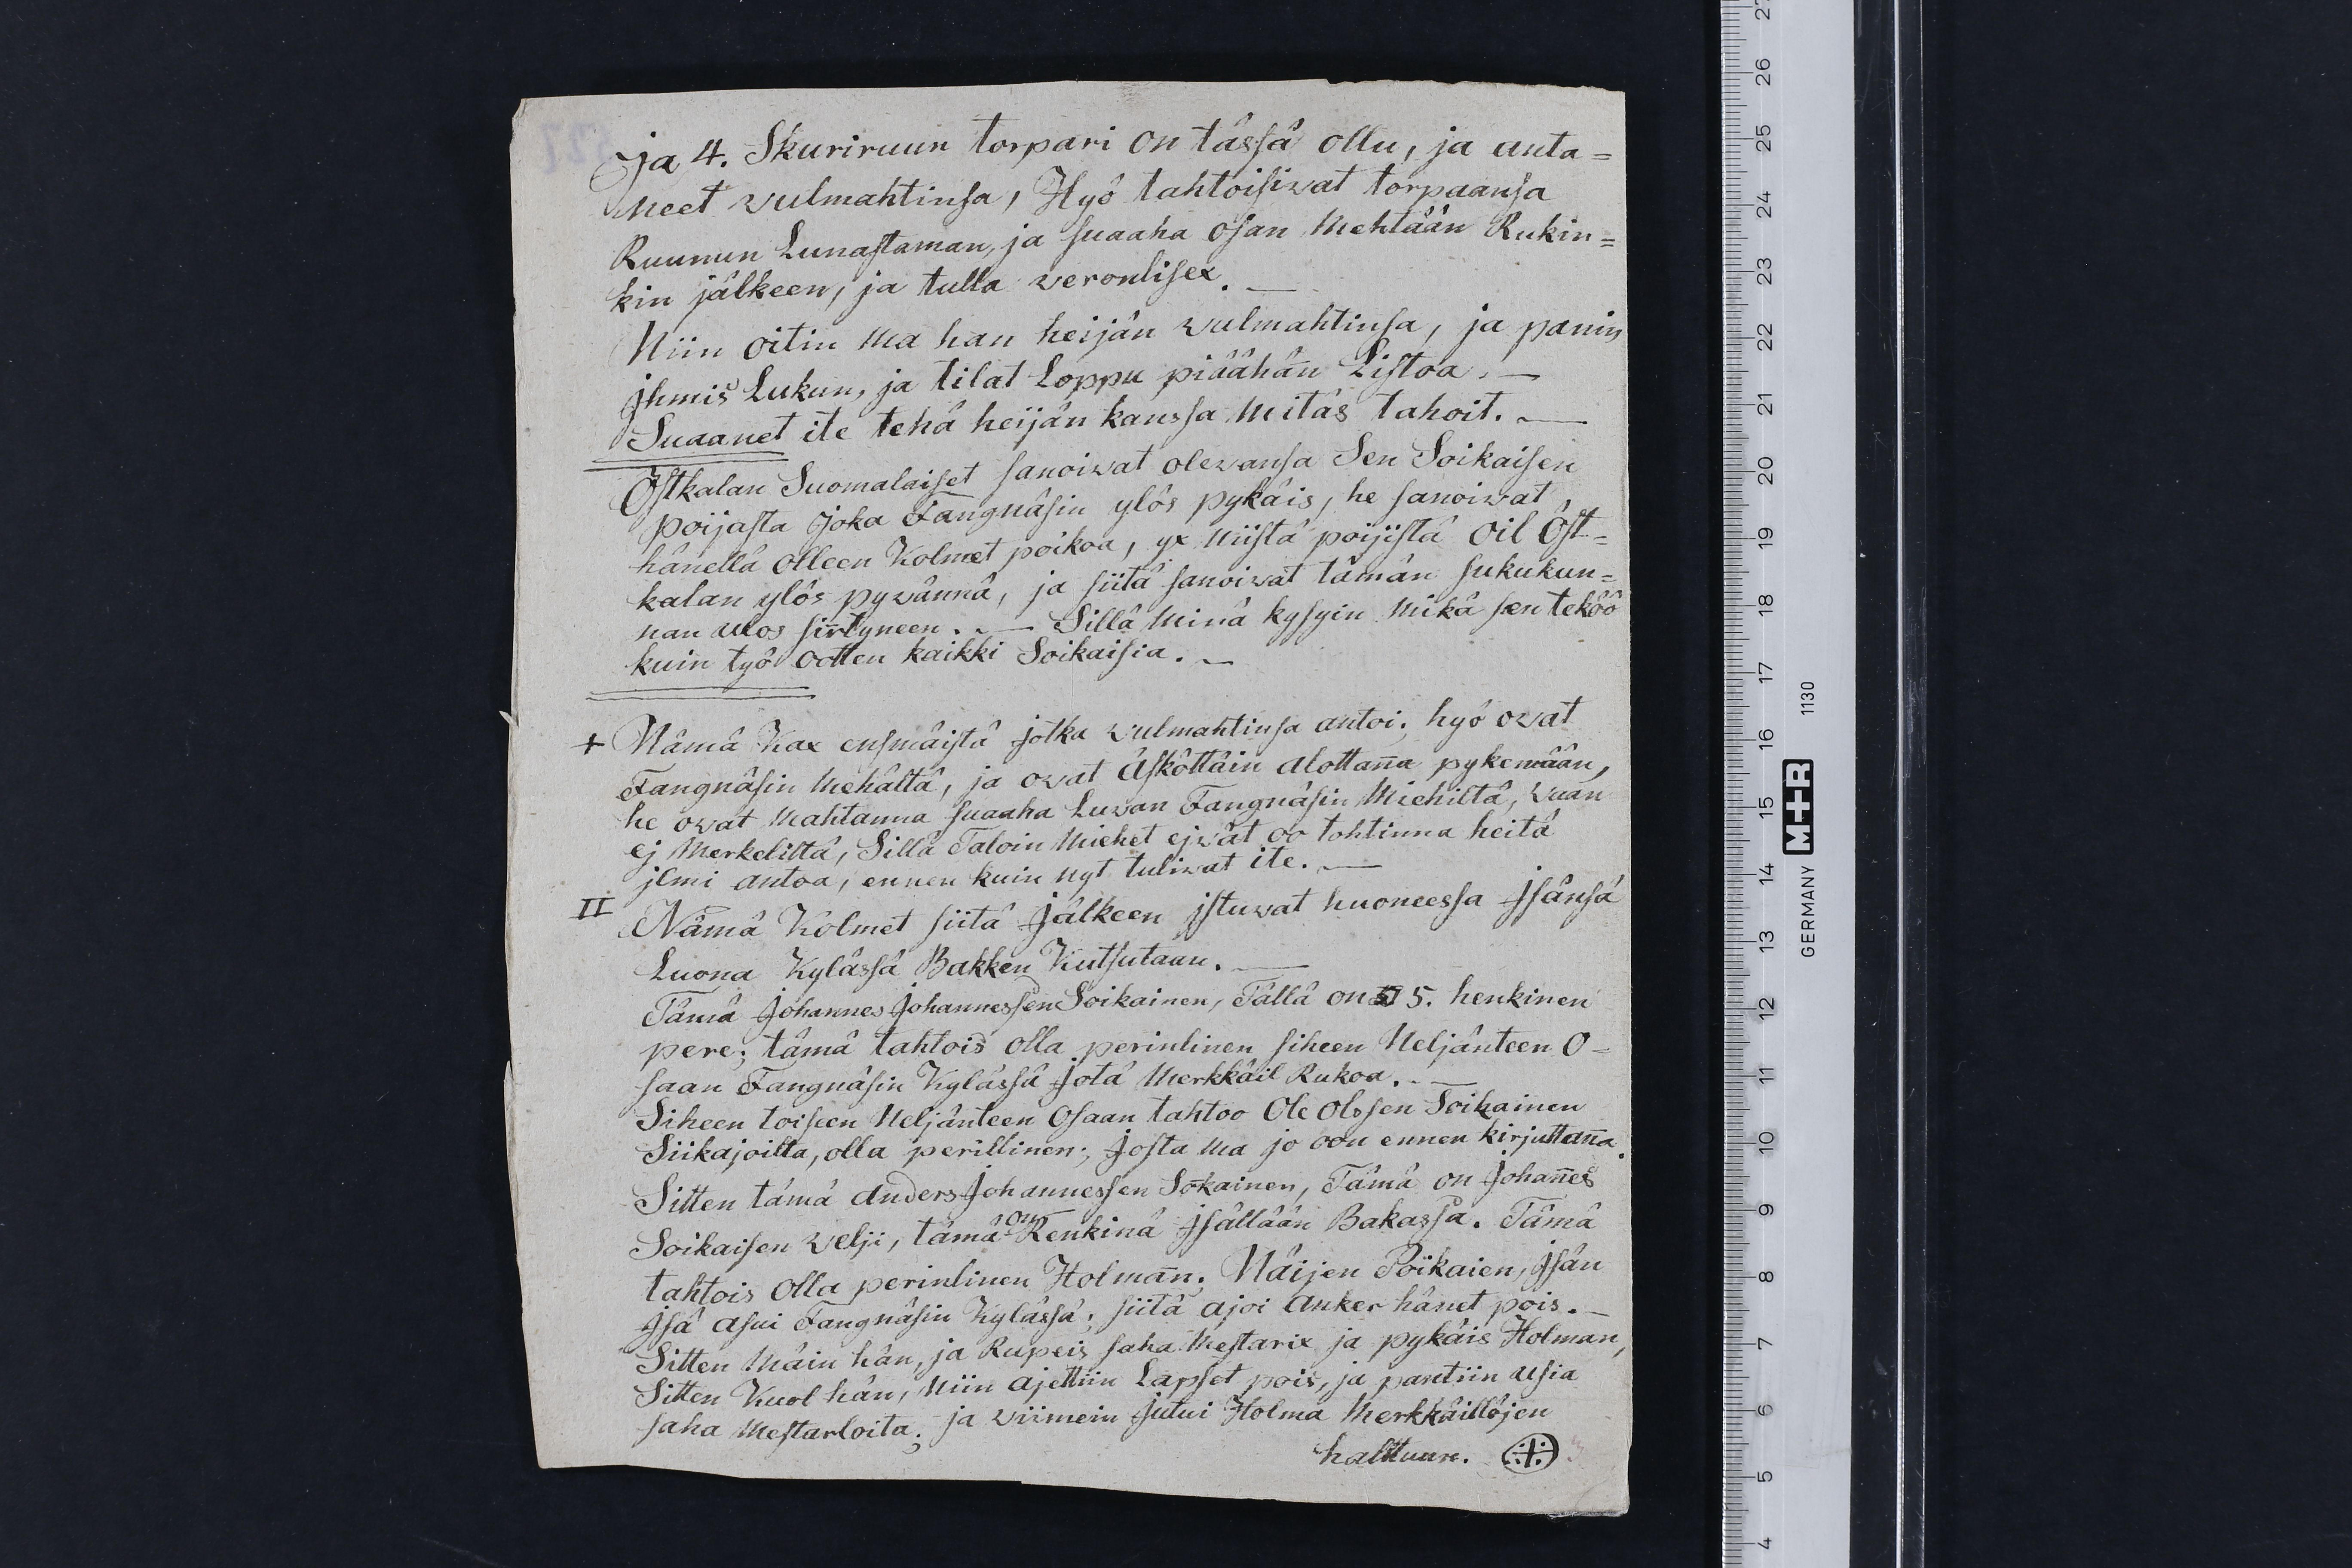 Ja 4. Skuriruun torpari on tässä ollu, ja anta=
neet vulmahtinsa, Hyö tahtoisivat torpaansa
Ruunun Lunastaman, ja suaaha osan Mehtään Rukin=
kin jälkeen, ja tulla veronlisex. —
Niin oitin Ma han heijän vulmahtinsa, ja panin
Jhmis Lukun, ja tilat Loppu piäähän Listoa. —
Suaanet ite tehä heijän kanssa Mitäs tahoit. —
Östkalan Suomalaiset sanoivat olevansa Sen Soikaisen
poijasta Joka Fangnäsin ylös pykäis, he sanoivat,
hänellä olleen Kolmet poikoa, yx Niistä poijistä oil Öst=
kalan ylös pyvännä, ja siitä sanoivat tämän sukukun=
nan ulos sirtyneen. — Sillä Minä kysyin Mikä sen teköö
kuin työ ootten kaikki Soikaisia. —
+ Nämä Kax ensmäistä jotka vulmahtinsa antoi; hyö ovat
Fangnäsin Mehältä, ja ovat Äsköttäin alottan̄a pykemään,
he ovat Mahtanna suaaha Luvan Fangnäsin Miehiltä, vuan
ej Merkeliltä, Sillä Taloin Miehet ejvät oo tohtinna heitä
jlmi antoa, ennen kuin nyt tulivat ite. —
II Nämä Kolmet siitä Jälkeen jstuvat huoneessa Jsänsä
Luona Kylässä Bakken Kutsutaan. —
Tämä Johannes Johannessen Soikainen, Tällä on 5. henkinen
pere; tämä tahtois olla perinlinen siheen Neljänteen O=
saan Fangnäsin Kylässä Jotä Merkkäil Rukoa. —
Siheen toiseen Neljänteen Osaan tahtoo Ole Olssen Soikainen
Siikajoilta, olla perillinen; Josta Ma jo oon ennen kirjuttan̄a.
Sitten tämä Anders Johannessen Sokainen, Tämä on Johan̄es
Soikaisen velji, tämä on Renkinä Jsällään Bakassa. Tämä
tahtois olla perinlinen Holman̄. Näijen Poikaien, Jsän
Jsä asui Fangnäsin Kylässä; siitä ajoi Anker hänet pois. —
Sitten Mäin hän, ja Rupeis saha Mestarix ja pykäis Holman,
Sitten Kuol hän, Niin ajettiin Lapset pois, ja pantiin usia
saha Mestarloita; ja viimein Jutui Holma Merkkäillöjen
halttuun.